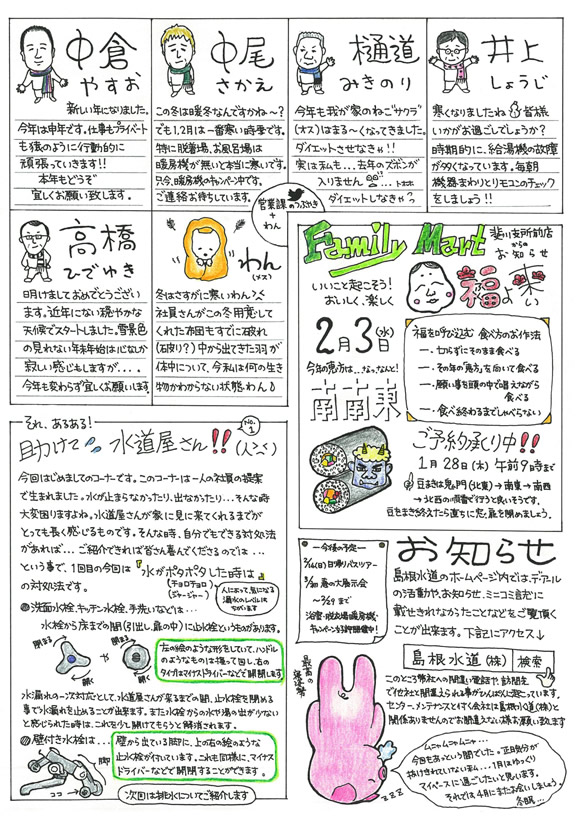 中倉
やすお
新しい年になりました。
今年は申年です。仕事もプライベート
も猿のように行動的に
頑張っていきます!!
本年もどうぞ
宜しくお願い致します。
中尾
さかえ
この冬は暖冬なんですかね〜?
でも1,2月は一番寒い時季です。
特に脱着場、お風呂場は
暖房機が無いと本当に寒いです。
只今、暖房機のキャンペーン中です。
ご連絡お待ちしています。
樋道
みきのり
今年も我が家のねこ"サクラ"
(オス)はまる〜くなってきました。
ダイエットさせなきゃ!!
実は私も…去年のズボンが
入りません
ダイエットしなきゃっ
井上
しょうじ
寒くなりましたね 皆様
いかがお過ごしでしょうか?
時期的に、給湯機の故障
が多くなっています。毎朝
機器まわりとリモコンのチェック
をしましょう!!
営業課のつぶやき
+
わん
高橋
ひでゆき
明けましておめでとうござい
ます。近年にない穏やかな
天候でスタートしました。雪景色
の見れない年末年始は心なしか
寂しい感じもしますが....
今年も変わらず宜しくお願いします。
わん
(メス)
冬はさすがに寒いわん
社員さんがこの冬用覚して
くれた布団もすでに破れ
(破り?)中から出てきた羽が
体中について、今私は何の生き
物かわからない状態わん
Family Mart
斐川支所前店
からの
お知らせ
いいこと起こそう!
おいしく、楽しく
福よ来い
2月3日(水)
今年の恵方は…なっなんと!
南南東
福を呼び込む 食べ方のお作法
一、切らずにそのまま食べる
一、その年の「恵方」を向いて食べる
一、願い事を頭の中で唱えながら
食べる
一、食べ終わるまでしゃべらない
ご予約承り中!!
1月28日(木) 午前9時まで
豆まきは鬼門(北東)→南東→南西
→北西の順番で行うと良いそうです。
豆をまき終えたら直ちに窓、扉を閉めましょう。
それ、あるある!
助けて 水道屋さん!!
No.1
今回はじめましてのコーナーです。このコーナーは一人の社員の提案
で生まれました。水が止まらなかったり、出なかったり…そんな時
大変困りますよね。水道屋さんが家に見に来てくれるまでが
とっても長く感じるものです。そんな時、自分でもできる対処法
があれば… ご紹介できれば皆さん喜んでくださるのでは…
という事で、1回目の今回は『水がポタポタした時は』
(チョロチョロ)
(ジャージャー)
の対処法です。
人によって、気になる
漏水のレベルは
ちがいます
洗面水栓、キッチン水栓、手洗いなどは…
水栓から床までの間(引出し、扉の中)に止水栓というものがあります。
閉まる
開まる
や
左の絵のような形をしていて、ハンドル
のようなものは握って回し、右の
タイプはマイナスドライバーなどで開閉します
水漏れの一次対応として、水道屋さんが来るまでの間、止水栓を閉める
事で水漏れを止めることが出来ます。また水栓からの水や湯の出が少ない
と感じられた時は、これを少し開けてもらうと解消されます。
壁付き水栓は…
壁から出ている脚に、上の右の絵のような
止水栓が付いています。これも同様に、マイナス
ドライバーなどで開閉することができます。
脚
ココ
次回は排水についてご紹介します
今後の予定
お知らせ
島根水道のホームページ内では、デュアル
の活動や、お知らせ、ミニコミ誌に
載せきれなかったことなどをご覧頂く
ことが出来ます。下記にアクセス↓
島根水道(株) 検索
このところ弊社への間違い電話や訪問先
で他社と間違えられる事がひんぱんに起こっています。
センター、メンテナンスとイすく会社は島根水道(株)と
関係ありませんのでお間違えない様お願い致します
ムニャムニャムニャ…
今日もあっという間でした。正月気分が
抜けきれていないまん…1月はゆっくり
マイペースに過ごしたいと思います。
それでは4月にまたお会いしましょう。
冬眠…
ZZZ